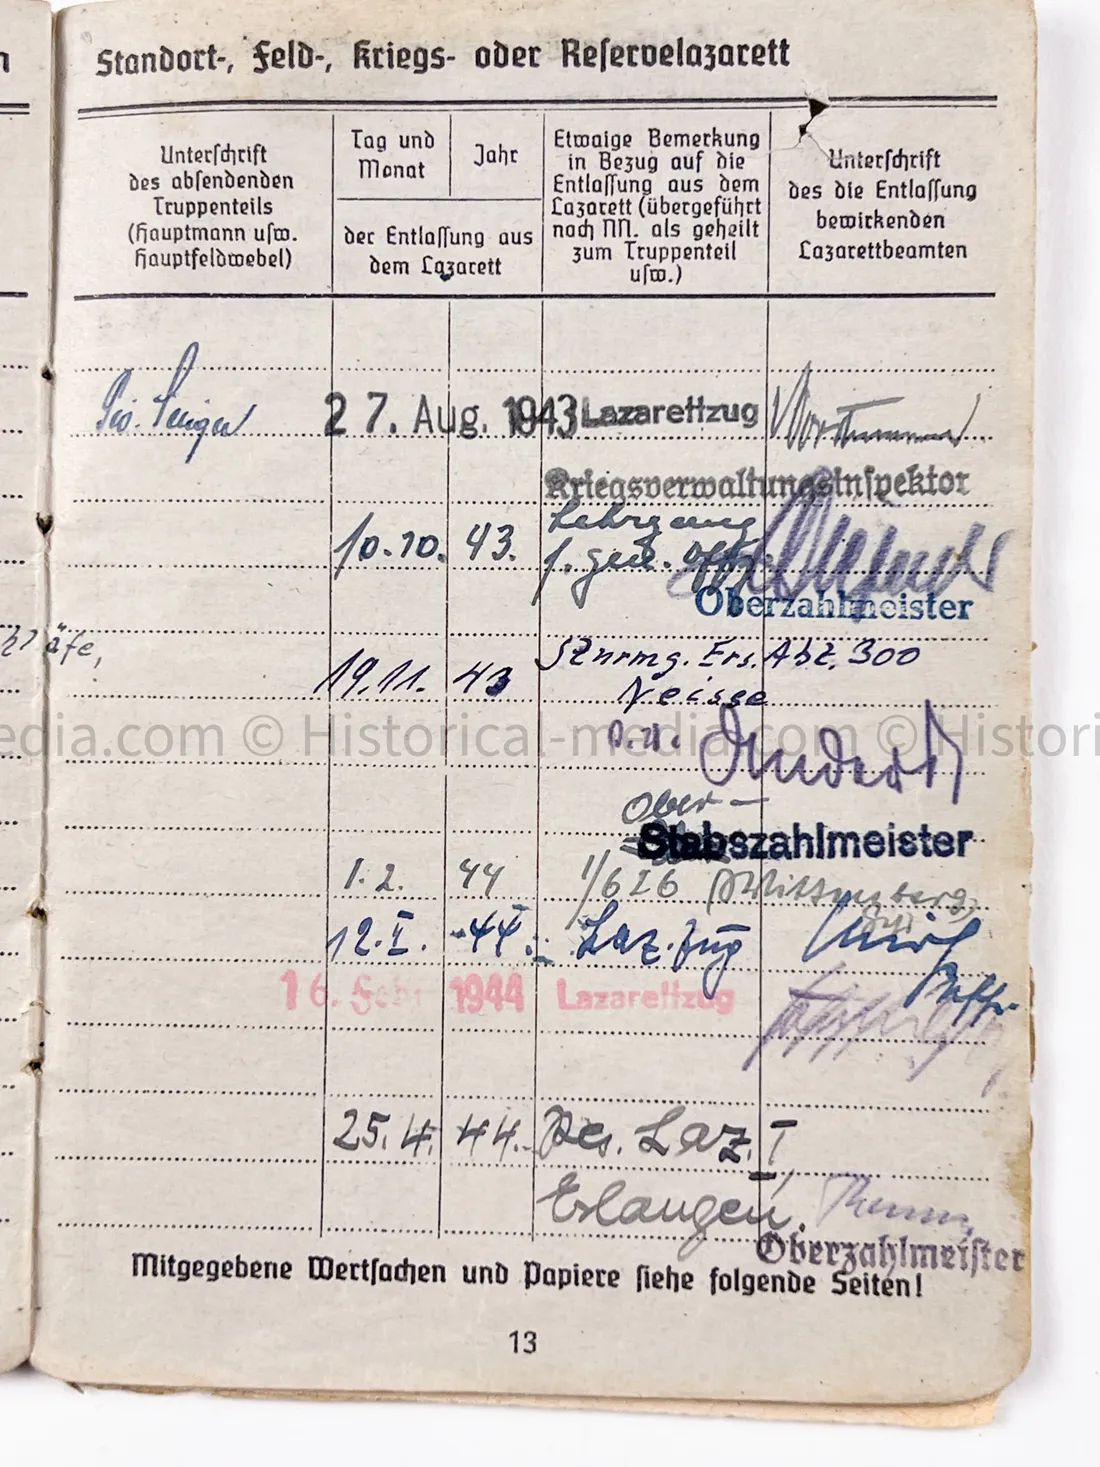 Standort-, Feld-, Kriegs- oder Reservelazarett
Unterschrift
des absendenden
Truppenteils
(Hauptmann usw.
Hauptfeldwebel)
Tag und
Monat
Jahr
der Entlassung aus
dem Lazarett
Etwaige Bemerkung
in Bezug auf die
Entlassung aus dem
Lazarett (übergeführt
nach NN. als geheilt
zum Truppenteil
usw.)
Unterschrift
des die Entlassung
bewirkenden
Lazarettbeamten
27. Aug. 1943 Lazarettzug
Kriegsverwaltungsinspektor
10.10. 43. Lehrgang
f. gen. Offz.
Oberzahlmeister
19.11. 43 Sturmg. Ers. Abt. 300
Neisse
Ober-
Stabszahlmeister
1.2. 44 1/626 Wittenberg
12.I. -44. Laz. zug
16. Feb. 1944 Lazarettzug
25.4. 44. Res. Laz. I,
Erlangen.
Oberzahlmeister
Mitgegebene Wertsachen und Papiere siehe folgende Seiten!
13
edia.com © Historical-media.com © Histori